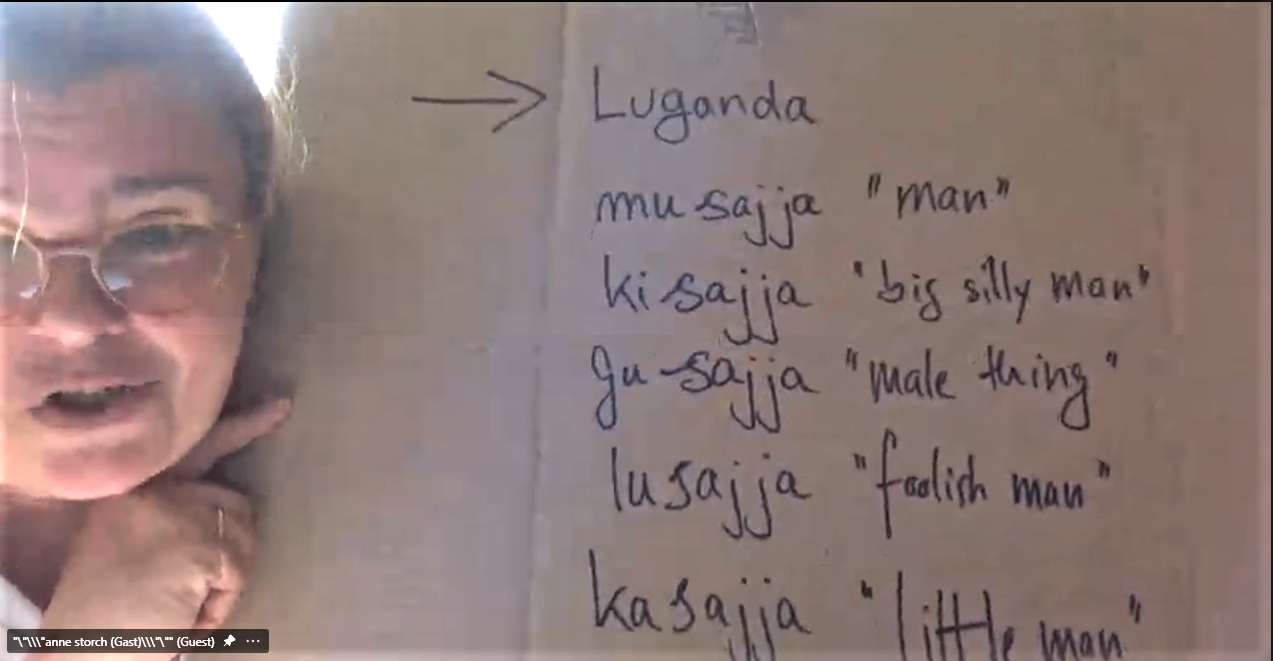 Luganda
mu-sajja "man"
ki-sajja "big silly man"
gu-sajja "male thing"
lusajja "foolish man"
kasajja "little man"
"\"\\\"anne storch (Gast)\\\"\"" (Guest)